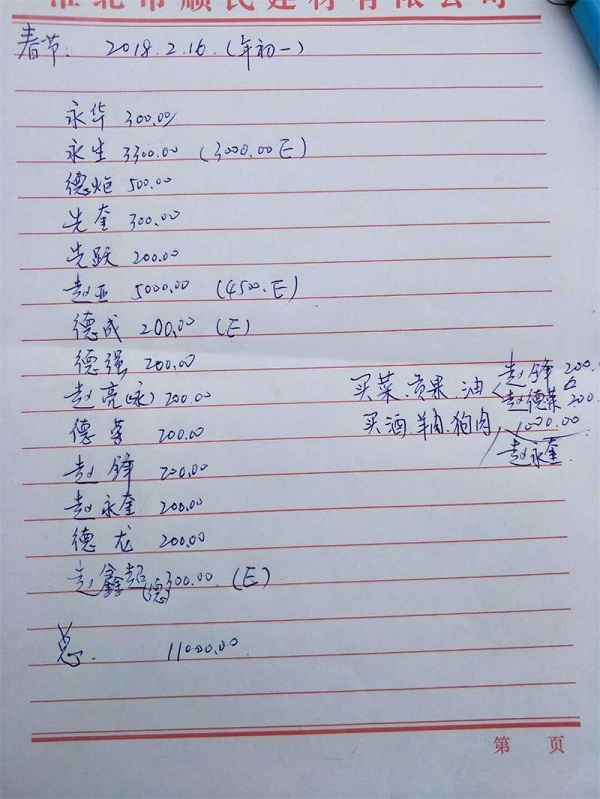 淮北市顺民建材有限公司
春节: 2018.2.16.(年初一)
永华 300.00
永生 3300.00 (3000.00E)
德炬 500.00
先奎 300.00
先跃 200.00
赵亚 5000.00 (4500.E)
德成 200.00 (E)
德强 200.00
赵亮(咏) 200.00
德荣 200.00
赵锋 200.00
赵永奎 200.00
德龙 200.00
赵鑫超(德) 300.00 (E)
总. 11000.00
买菜.贡果.油 赵锋 200.
赵德荣 200.
买酒.羊肉.狗肉, 1000.00
赵永奎.
第 页